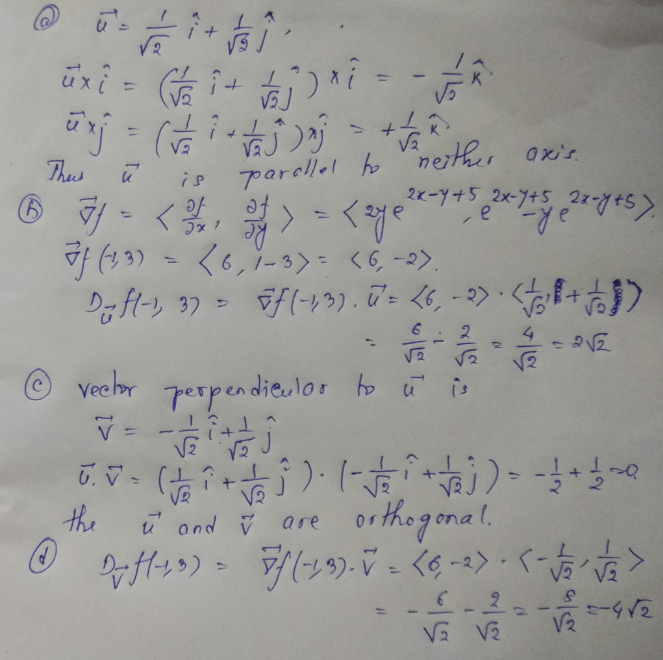 (a) u⃗ = 1/√2 î + 1/√2 ĵ,
u⃗ × î = (1/√2 î + 1/√2 ĵ) × î = - 1/√2 k̂
u⃗ × ĵ = (1/√2 î + 1/√2 ĵ) × ĵ = + 1/√2 k̂
Thus u⃗ is parallel to neither axis.
(b) ∇⃗f = < ∂f/∂x, ∂f/∂y > = < 2ye^(2x-y+5), e^(2x-y+5) - ye^(2x-y+5) >.
∇⃗f(-1,3) = < 6, 1-3 > = < 6, -2 >.
D_u⃗ f(-1, 3) = ∇⃗f(-1,3) . u⃗ = < 6, -2 > . < 1/√2, + 1/√2 )
= 6/√2 - 2/√2 = 4/√2 = 2√2
(c) vector perpendicular to u⃗ is
v⃗ = - 1/√2 î + 1/√2 ĵ
u⃗ . v⃗ = (1/√2 î + 1/√2 ĵ) . (- 1/√2 î + 1/√2 ĵ) = - 1/2 + 1/2 = 0
the u⃗ and v⃗ are orthogonal.
(d) D_v⃗ f(-1,3) = ∇⃗f(-1,3) . v⃗ = < 6, -2 > . < - 1/√2, 1/√2 >
= - 6/√2 - 2/√2 = - 8/√2 = -4√2